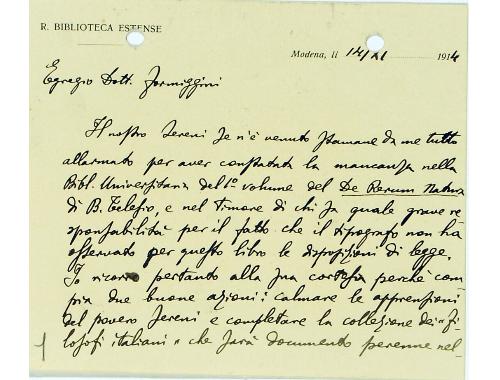 R. BIBLIOTECA ESTENSE
Modena, li 14/XI 1914
Egregio Dott. Formiggini
Il nostro Sereni se n'è venuto stamane da me tutto
allarmato per aver constatata la mancanza nella
Bibl. Universitaria del 1º volume del De Rerum Natura
di B. Telesio, e nel timore di chi sa quale grave re
sponsabilità per il fatto che il tipografo non ha
osservato per questo libro le disposizioni di legge.
Io ricorro pertanto alla sua cortesia perchè com
pia due buone azioni: calmare le apprensioni
del povero Sereni e completare la collezione dei "Fi
losofi italiani" che sarà documento perenne nel-